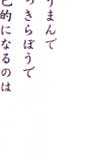 りまんで
っきらぼうで
己的になるのは